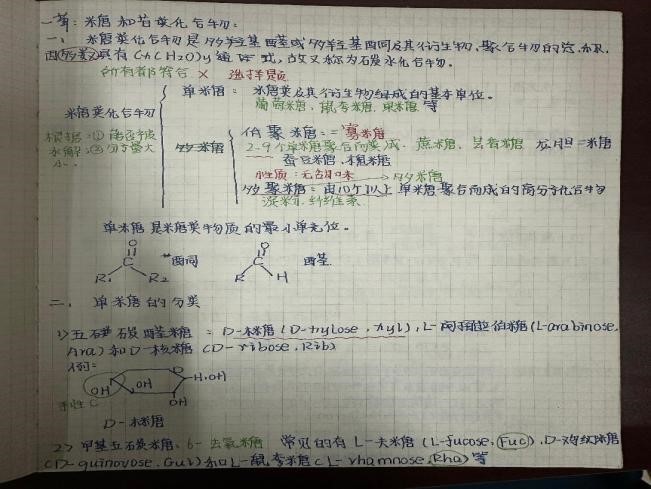 一章：糖和苷类化合物：
一、糖类化合物是多羟基醛或多羟基酮及其衍生物、聚合物的总称,
因(多数)具有Cx(H2O)y通式，故又称为碳水化合物。
所有都符合 × 选择题
单糖：糖类及其衍生物组成的基本单位。
葡萄糖、鼠李糖、果糖 等
糖类化合物
根据：①能否被
水解：②分子量大
小。
多糖
低聚糖：=寡糖
2-9个单糖聚合而成. 蔗糖、芸香糖 龙胆=糖
蚕豆糖、槐糖
性质：无甜味 多糖
多聚糖：由10个以上单糖聚合而成的高分子化合物
淀粉、纤维素
单糖是糖类物质的最小单位。
O C R1 R2 酮
O C R H 醛
二、单糖的分类
1>五碳醛糖：D-木糖(D-xylose, xyl), L-阿拉伯糖(L-arabinose,
Ara)和D-核糖 (D-ribose, Rib)
例：
OH OH O H,OH OH
手性C
D-木糖
2> 甲基五碳糖、6-去氧糖 常见的有 L-夫糖 (L-fucose, Fuc), D-鸡纳糖
(D-quinovose, Qui)和L-鼠李糖(L-rhamnose, Rha)等